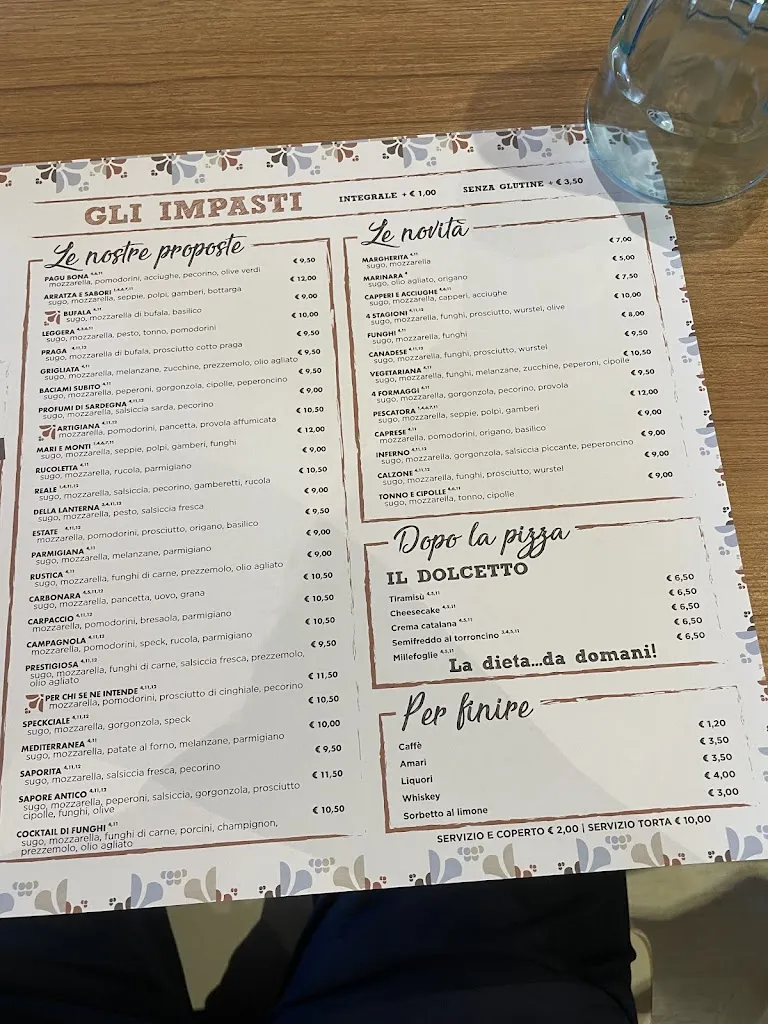 GLI IMPASTI
INTEGRALE + € 1,00
SENZA GLUTINE + € 3,50
Le nostre proposte
PAGU BONA 4,6,11 € 9,50
mozzarella, pomodorini, acciughe, pecorino, olive verdi
ARRATZA E SABORI 1,4,6,7,11 € 12,00
sugo, mozzarella, seppie, polpi, gamberi, bottarga
BUFALA 4,11 € 9,00
sugo, mozzarella di bufala, basilico
LEGGERA 4,11 € 10,00
sugo, mozzarella, pesto, tonno, pomodorini
PRAGA 4,11,12 € 9,50
sugo, mozzarella di bufala, prosciutto cotto praga
GRIGLIATA 4,11 € 9,50
sugo, mozzarella, melanzane, zucchine, prezzemolo, olio agliato
BACIAMI SUBITO 4,11 € 9,50
sugo, mozzarella, peperoni, gorgonzola, cipolle, peperoncino
PROFUMI DI SARDEGNA 4,11,12 € 9,00
sugo, mozzarella, salsiccia sarda, pecorino
ARTIGIANA 4,11,12 € 10,50
mozzarella, pomodorini, pancetta, provola affumicata
MARI E MONTI 1,4,6,7,11 € 12,00
sugo, mozzarella, seppie, polpi, gamberi, funghi
RUCOLETTA 4,11 € 9,00
sugo, mozzarella, rucola, parmigiano
REALE 1,4,11,12 € 10,50
sugo, mozzarella, salsiccia, pecorino, gamberetti, rucola
DELLA LANTERNA 3,4,11,12 € 9,00
sugo, mozzarella, pesto, salsiccia fresca
ESTATE 4,11,12 € 9,50
mozzarella, pomodorini, prosciutto, origano, basilico
PARMIGIANA 4,11 € 9,00
sugo, mozzarella, melanzane, parmigiano
RUSTICA 4,11 € 9,00
sugo, mozzarella, funghi di carne, prezzemolo, olio agliato
CARBONARA 4,5,11,12 € 10,50
sugo, mozzarella, pancetta, uovo, grana
CARPACCIO 4,11,12 € 10,50
mozzarella, pomodorini, bresaola, parmigiano
CAMPAGNOLA 4,11,12 € 10,50
mozzarella, pomodorini, speck, rucola, parmigiano
PRESTIGIOSA 4,11,12 € 9,50
sugo, mozzarella, funghi di carne, salsiccia fresca, prezzemolo,
olio agliato
PER CHI SE NE INTENDE 4,11,12 € 11,50
mozzarella, pomodorini, prosciutto di cinghiale, pecorino
SPECKCIALE 4,11,12 € 10,50
sugo, mozzarella, gorgonzola, speck
MEDITERRANEA 4,11 € 10,00
sugo, mozzarella, patate al forno, melanzane, parmigiano
SAPORITA 4,11,12 € 9,50
sugo, mozzarella, salsiccia fresca, pecorino
SAPORE ANTICO 4,11,12 € 11,50
sugo, mozzarella, peperoni, salsiccia, gorgonzola, prosciutto
cipolle, funghi, olive
COCKTAIL DI FUNGHI 4,11 € 10,50
sugo, mozzarella, funghi di carne, porcini, champignon,
prezzemolo, olio agliato
Le novità
MARGHERITA 4,11 € 7,00
sugo, mozzarella
MARINARA 4 € 5,00
sugo, olio agliato, origano
CAPPERI E ACCIUGHE 4,6,11 € 7,50
sugo, mozzarella, capperi, acciughe
4 STAGIONI 4,11,12 € 10,00
sugo, mozzarella, funghi, prosciutto, wurstel, olive
FUNGHI 4,11 € 8,00
sugo, mozzarella, funghi
CANADESE 4,11,12 € 9,50
sugo, mozzarella, funghi, prosciutto, wurstel
VEGETARIANA 4,11 € 10,50
sugo, mozzarella, funghi, melanzane, zucchine, peperoni, cipolle
4 FORMAGGI 4,11 € 9,50
sugo, mozzarella, gorgonzola, pecorino, provola
PESCATORA 1,4,6,7,11 € 12,00
sugo, mozzarella, seppie, polpi, gamberi
CAPRESE 4,11 € 9,00
mozzarella, pomodorini, origano, basilico
INFERNO 4,11,12 € 9,00
sugo, mozzarella, gorgonzola, salsiccia piccante, peperoncino
CALZONE 4,11,12 € 9,00
sugo, mozzarella, funghi, prosciutto, wurstel
TONNO E CIPOLLE 4,6,11 € 9,00
sugo, mozzarella, tonno, cipolle
Dopo la pizza
IL DOLCETTO
Tiramisù 4,5,11 € 6,50
Cheesecake 4,5,11 € 6,50
Crema catalana 4,5,11 € 6,50
Semifreddo al torroncino 3,4,5,11 € 6,50
Millefoglie 4,5,11 € 6,50
La dieta...da domani!
Per finire
Caffè € 1,20
Amari € 3,50
Liquori € 3,50
Whiskey € 4,00
Sorbetto al limone € 3,00
SERVIZIO E COPERTO € 2,00 | SERVIZIO TORTA € 10,00